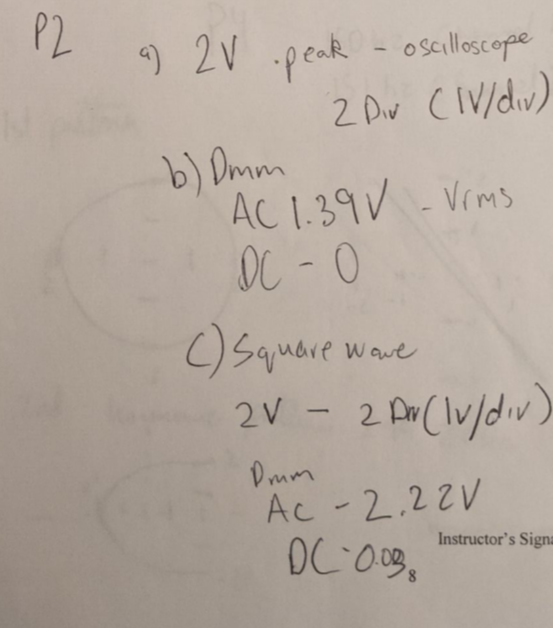 P2
a) 2V . peak - oscilloscope
2 Div (1V/div)
b) Dmm
AC 1.39V - Vrms
DC - 0
c) Square wave
2V - 2 Div (1v/div)
Dmm
AC - 2.22V
Instructor's Signa
DC -
8